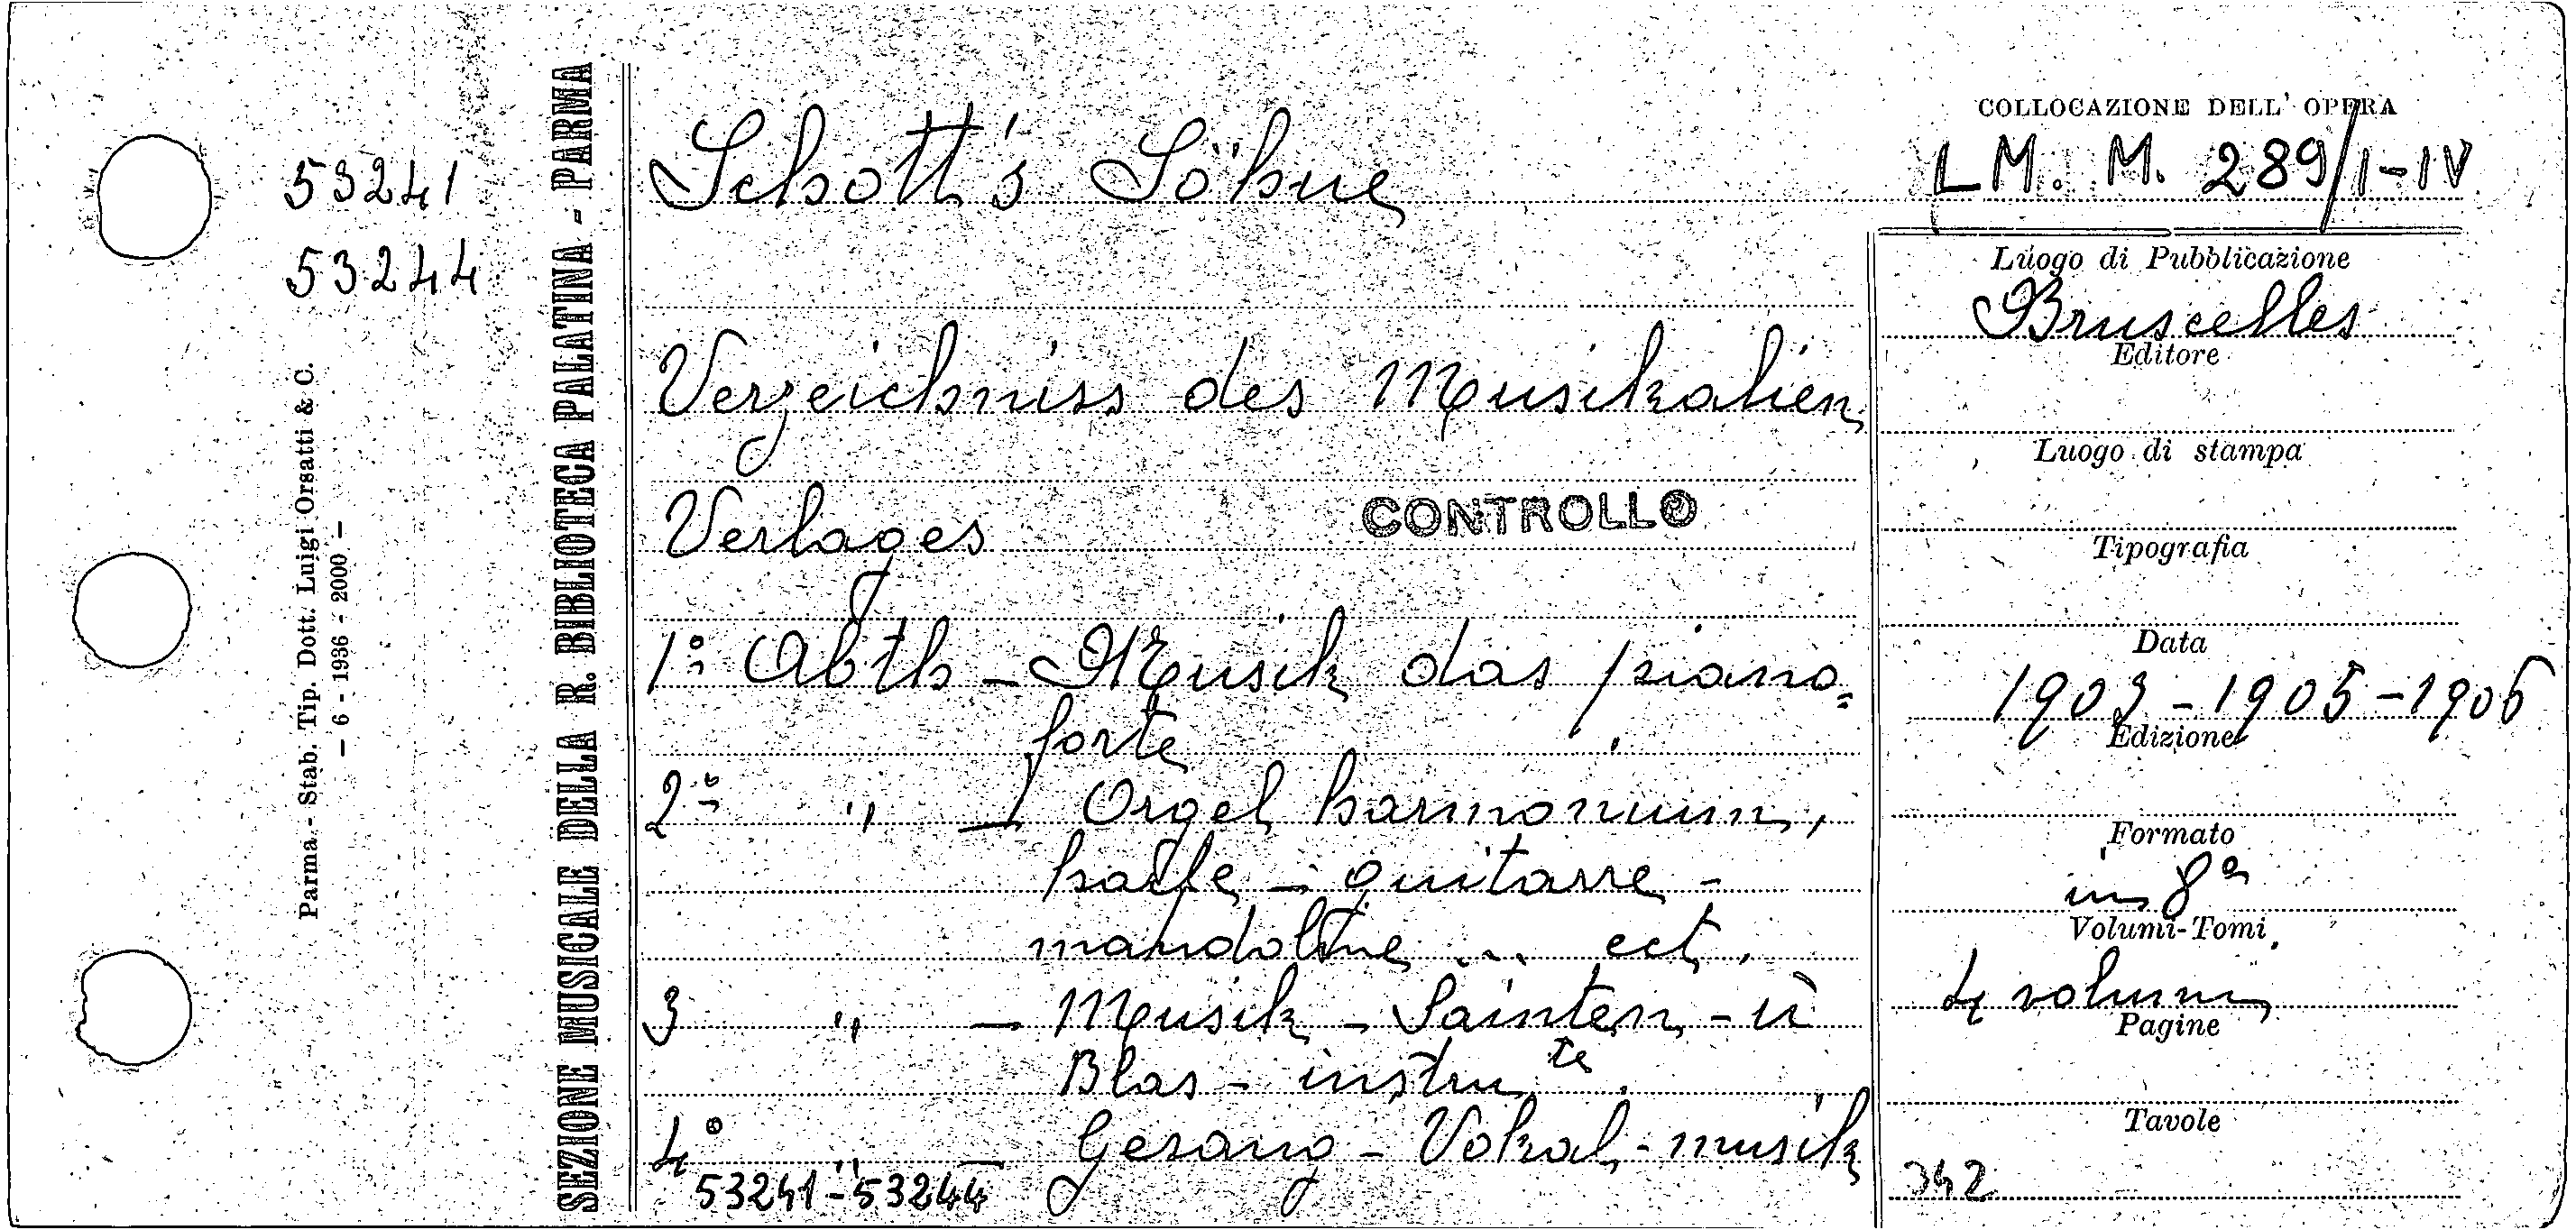 53241
53244
Parma - Stab. Tip. Dott. Luigi Orsatti & C.
- 6 - 1936 - 2000 -
SEZIONE MUSICALE DELLA R. BIBLIOTECA PALATINA - PARMA
Schott's Söhne
Verzeichniss des Musikalien
Verlages
CONTROLLO
1° Abth - Musik das piano=
forte
2° " - Orgel harmonium,
harfe - guitarre -
mandoline ... ect.
3 " - Musik - Sainten - ü
Blas - instru te.
4° " - Gesang - Vokal - musik
53241-53244
COLLOCAZIONE DELL' OPERA
L M. M. 289/I-IV
Luogo di Pubblicazione
Bruscelles
Editore
Luogo di stampa
Tipografia
Data
1903 - 1905 - 1906
Edizione
Formato
in 8°
Volumi-Tomi
4 volumi
Pagine
Tavole
342